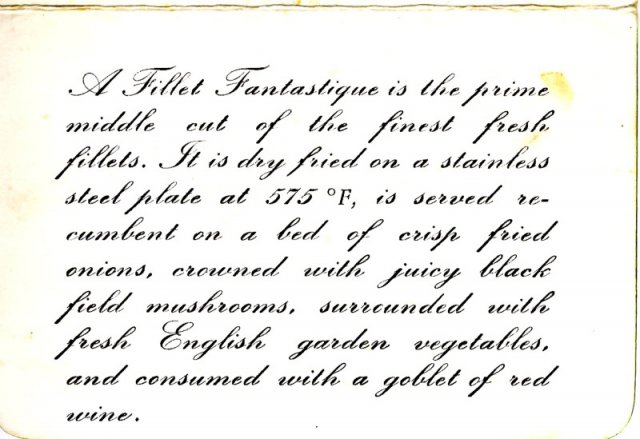 A Fillet Fantastique is the prime
middle cut of the finest fresh
fillets. It is dry fried on a stainless
steel plate at 575 °F, is served re-
cumbent on a bed of crisp fried
onions, crowned with juicy black
field mushrooms, surrounded with
fresh English garden vegetables,
and consumed with a goblet of red
wine.